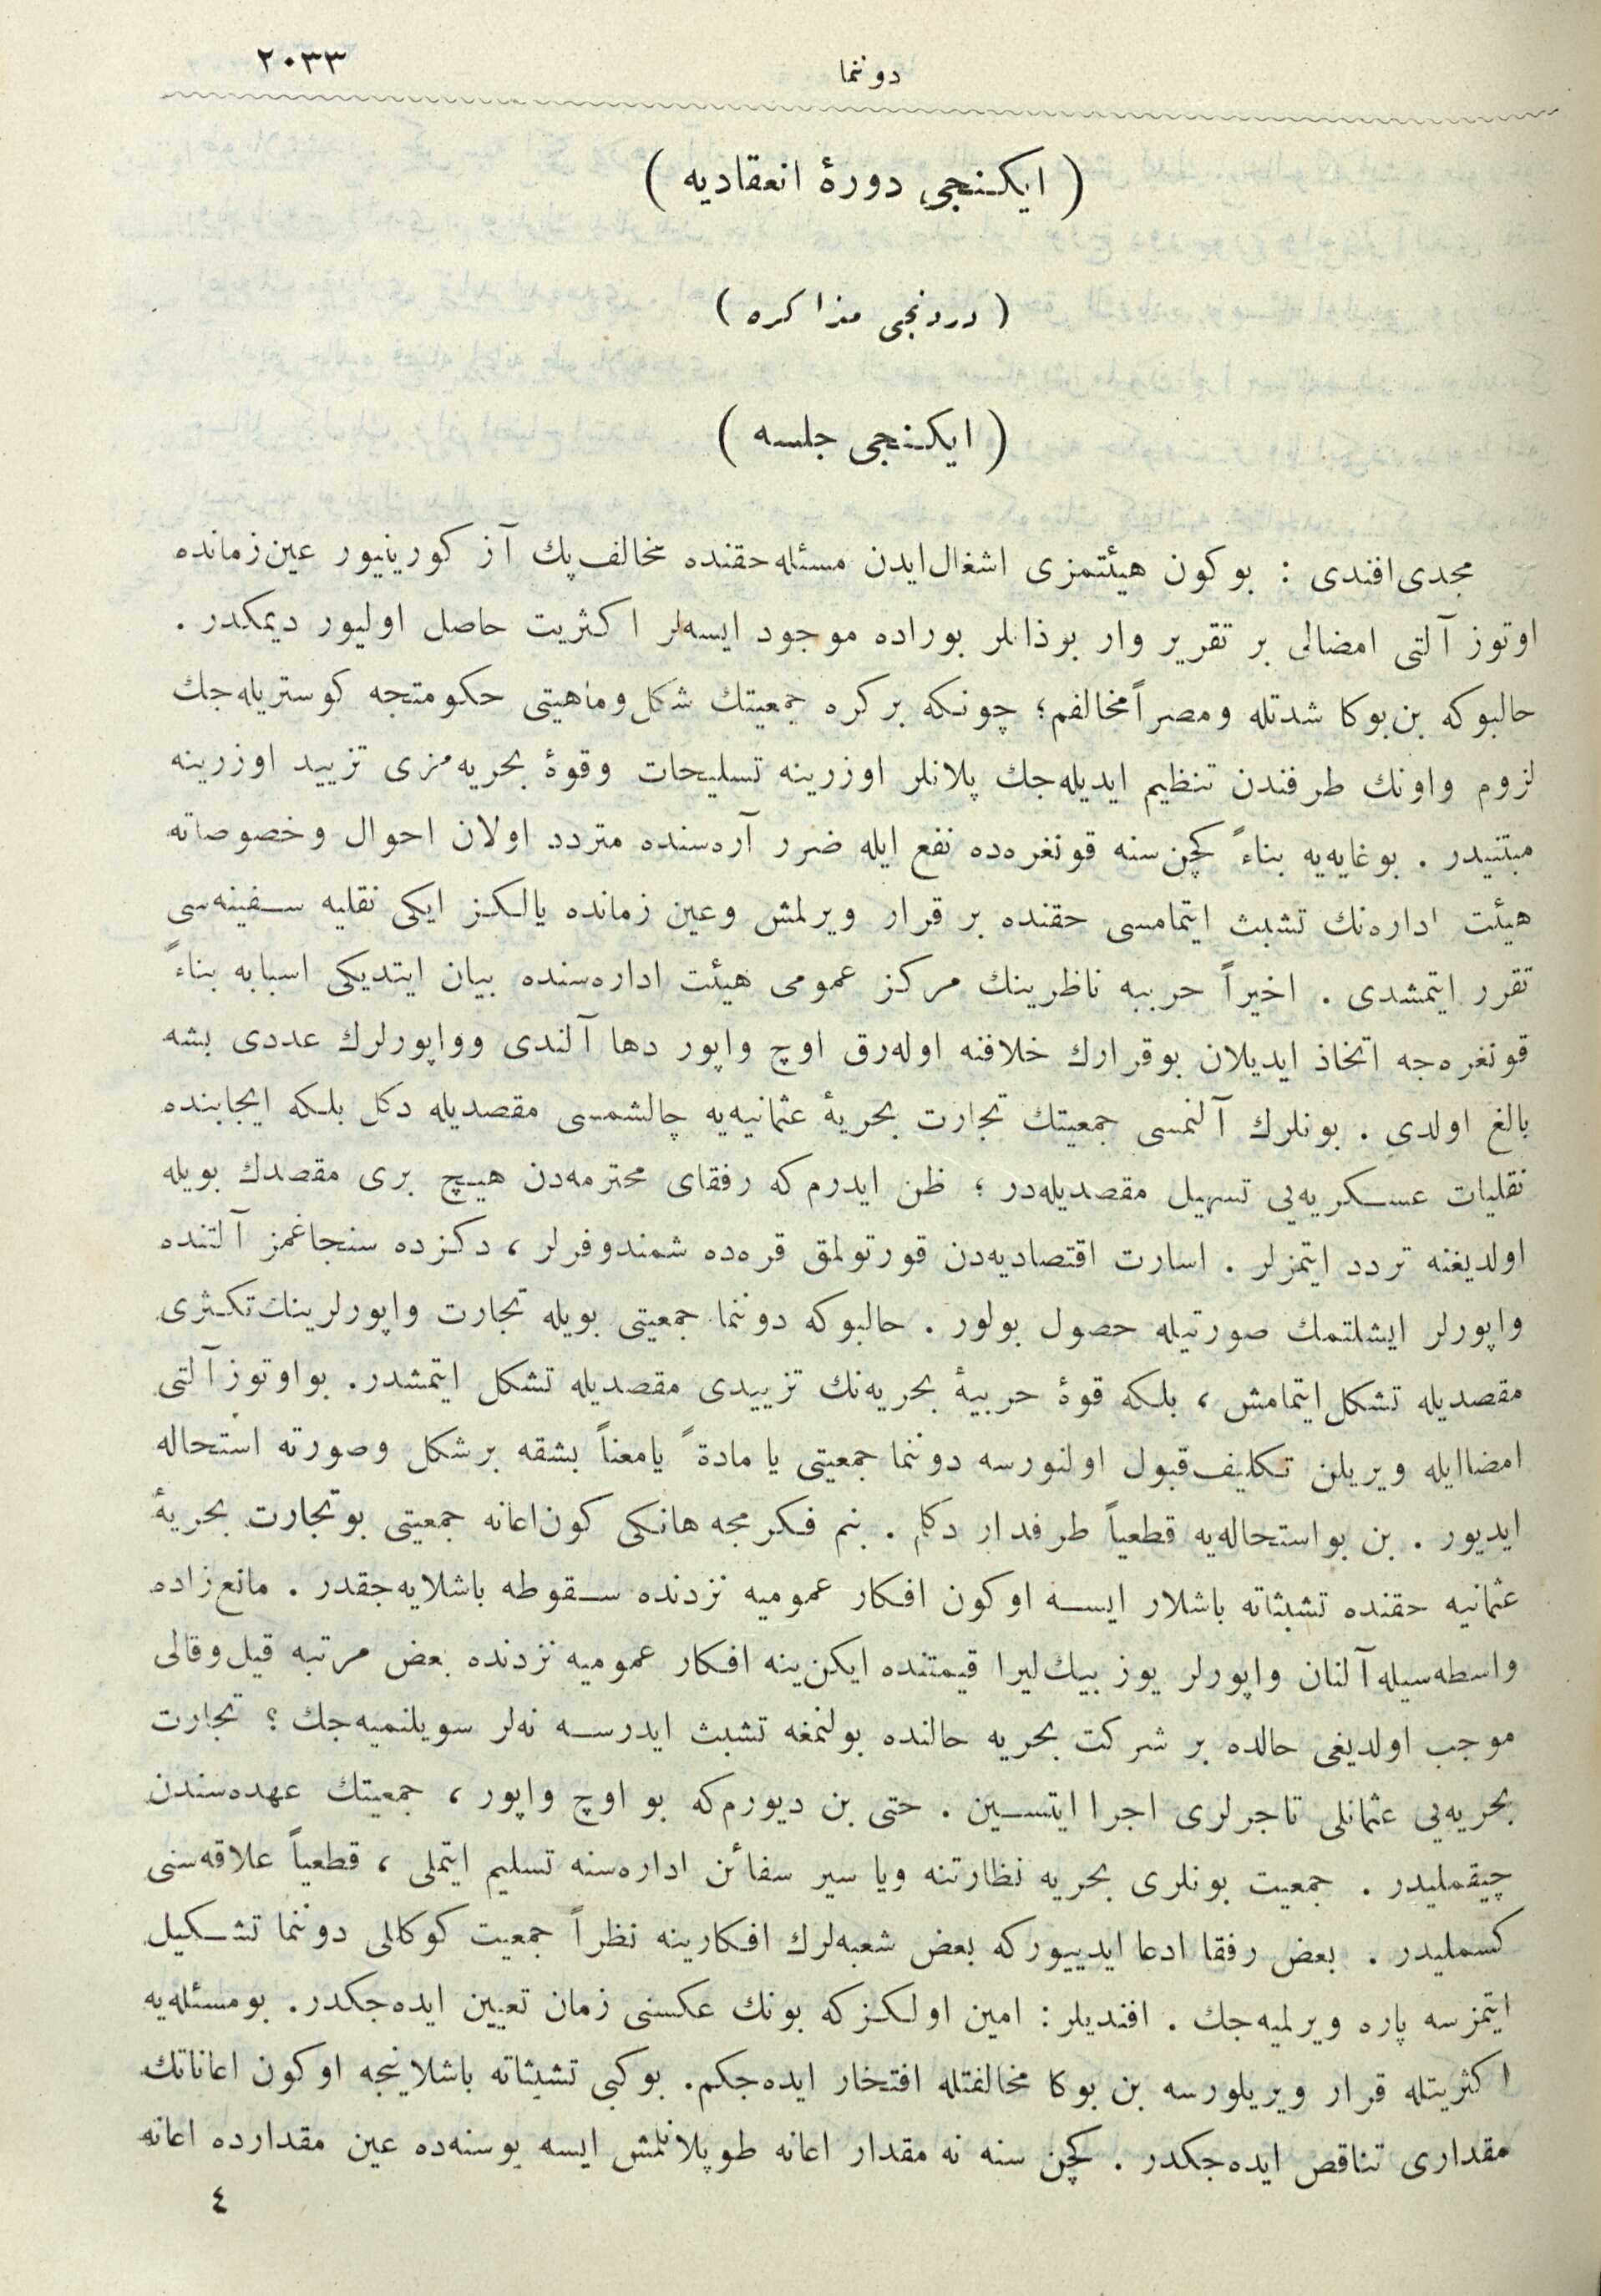 دوننما
٢٠٣٣
( ايكنجى دورۀ انعقاديه )
( دردنجى مذاكره )
( ايكنجى جلسه )
مجدى افندى : بوكون هيئتمزى اشغال ايدن مسئله حقنده مخالف پك آز كورينيور عين زمانده
اوتوز آلتى امضالى بر تقرير وار بوذاتلر بوراده موجود ايسه‌لر اكثريت حاصل اوليور ديمكدر .
حالبوكه بن بوكا شدتله ومصراً مخالفم؛ چونكه بركره جمعيتك شكل وماهيتى حكومتجه كوستريله‌جك
لزوم واونك طرفندن تنظيم ايديله‌جك پلانلر اوزرينه تسليحات وقوۀ بحريه‌مزى تزييد اوزرينه
مبتنيدر . بوغايه‌يه بناءً كچن سنه قونغره‌ده نفع ايله ضرر آره‌سنده متردد اولان احوال وخصوصاته
هيئت اداره‌نك تشبث ايتمامسى حقنده بر قرار ويرلمش وعين زمانده يالكز ايكى نقليه سفينه‌سى
تقرر ايتمشدى . اخيراً حربيه ناظرينك مركز عمومى هيئت اداره‌سنده بيان ايتديكى اسبابه بناءً
قونغره‌جه اتخاذ ايديلان بوقرارك خلافنه اوله‌رق اوچ واپور دها آلندى وواپورلرك عددى بشه
بالغ اولدى . بونلرك آلنمسى جمعيتك تجارت بحريۀ عثمانيه‌يه چالشمسى مقصديله دكل بلكه ايجابنده
نقليات عسكريه‌يى تسهيل مقصديله‌در ؛ ظن ايدرم كه رفقاى محترمه‌دن هيچ برى مقصدك بويله
اولديغنه تردد ايتمزلر . اسارت اقتصاديه‌دن قورتولمق قره‌ده شمندوفرلر ، دكزده سنجاغمز آلتنده
واپورلر ايشلتمك صورتيله حصول بولور . حالبوكه دوننما جمعيتى بويله تجارت واپورلرينك تكثرى
مقصديله تشكل ايتمامش ، بلكه قوۀ حربيۀ بحريه‌نك تزييدى مقصديله تشكل ايتمشدر. بواوتوز آلتى
امضا ايله ويريلن تكليف قبول اولنورسه دوننما جمعيتى يا مادةً يامعناً بشقه برشكل وصورته استحاله
ايديور . بن بواستحاله‌يه قطعياً طرفدار دكلم . بنم فكرمجه هانكى كون اعانه جمعيتى بوتجارت بحريۀ
عثمانيه حقنده تشبثاته باشلار ايسه اوكون افكار عموميه نزدنده سقوطه باشلايه‌جقدر . مانع‌زاده
واسطه‌سيله آلنان واپورلر يوز بيك ليرا قيمتنده ايكن ينه افكار عموميه نزدنده بعض مرتبه قيل وقالى
موجب اولديغى حالده بر شركت بحريه حالنده بولنمغه تشبث ايدرسه نه‌لر سويلنميه‌جك ؟ تجارت
بحريه‌يى عثمانلى تاجرلرى اجرا ايتسين . حتى بن ديورم كه بو اوچ واپور ، جمعيتك عهده‌سندن
چيقمليدر . جمعيت بونلرى بحريه نظارتنه ويا سير سفائن اداره‌سنه تسليم ايتملى ، قطعياً علاقه‌سنى
كسمليدر . بعض رفقا ادعا ايدييوركه بعض شعبه‌لرك افكارينه نظراً جمعيت كوكللى دوننما تشكيل
ايتمزسه پاره ويرلميه‌جك . افنديلر : امين اولكزكه بونك عكسنى زمان تعيين ايده‌جكدر. بومسئله‌يه
اكثريتله قرار ويريلورسه بن بوكا مخالفتله افتخار ايده‌جكم. بوكبى تشبثاته باشلاينجه اوكون اعاناتك
مقدارى تناقص ايده‌جكدر . كچن سنه نه مقدار اعانه طوپلانمش ايسه بوسنه‌ده عين مقدارده اعانه
٤